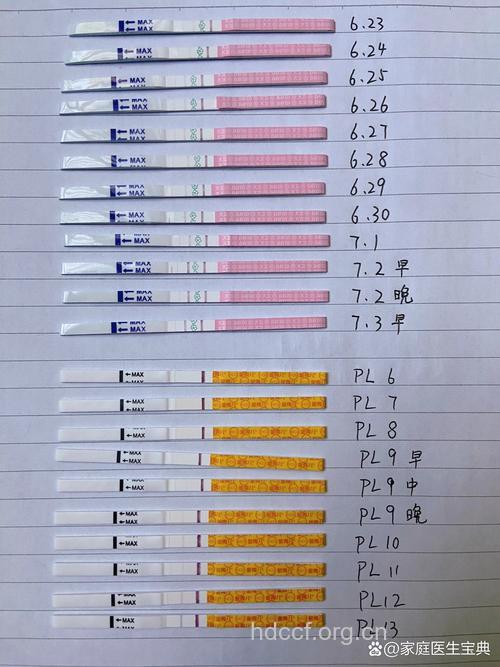 MAX 6.23
MAX 6.24
MAX 6.25
MAX 6.26
MAX 6.27
MAX 6.28
MAX 6.29
MAX 6.30
MAX 7.1
MAX 7.2 早
MAX 7.2 晚
MAX 7.3 早
MAX PL 6
MAX PL 7
MAX PL 8
MAX PL 9 早
MAX PL 9 中
MAX PL 9 晚
MAX PL 10
MAX PL 11
MAX PL 12
MAX PL 13
hdccf.org.cn
@家庭医生宝典